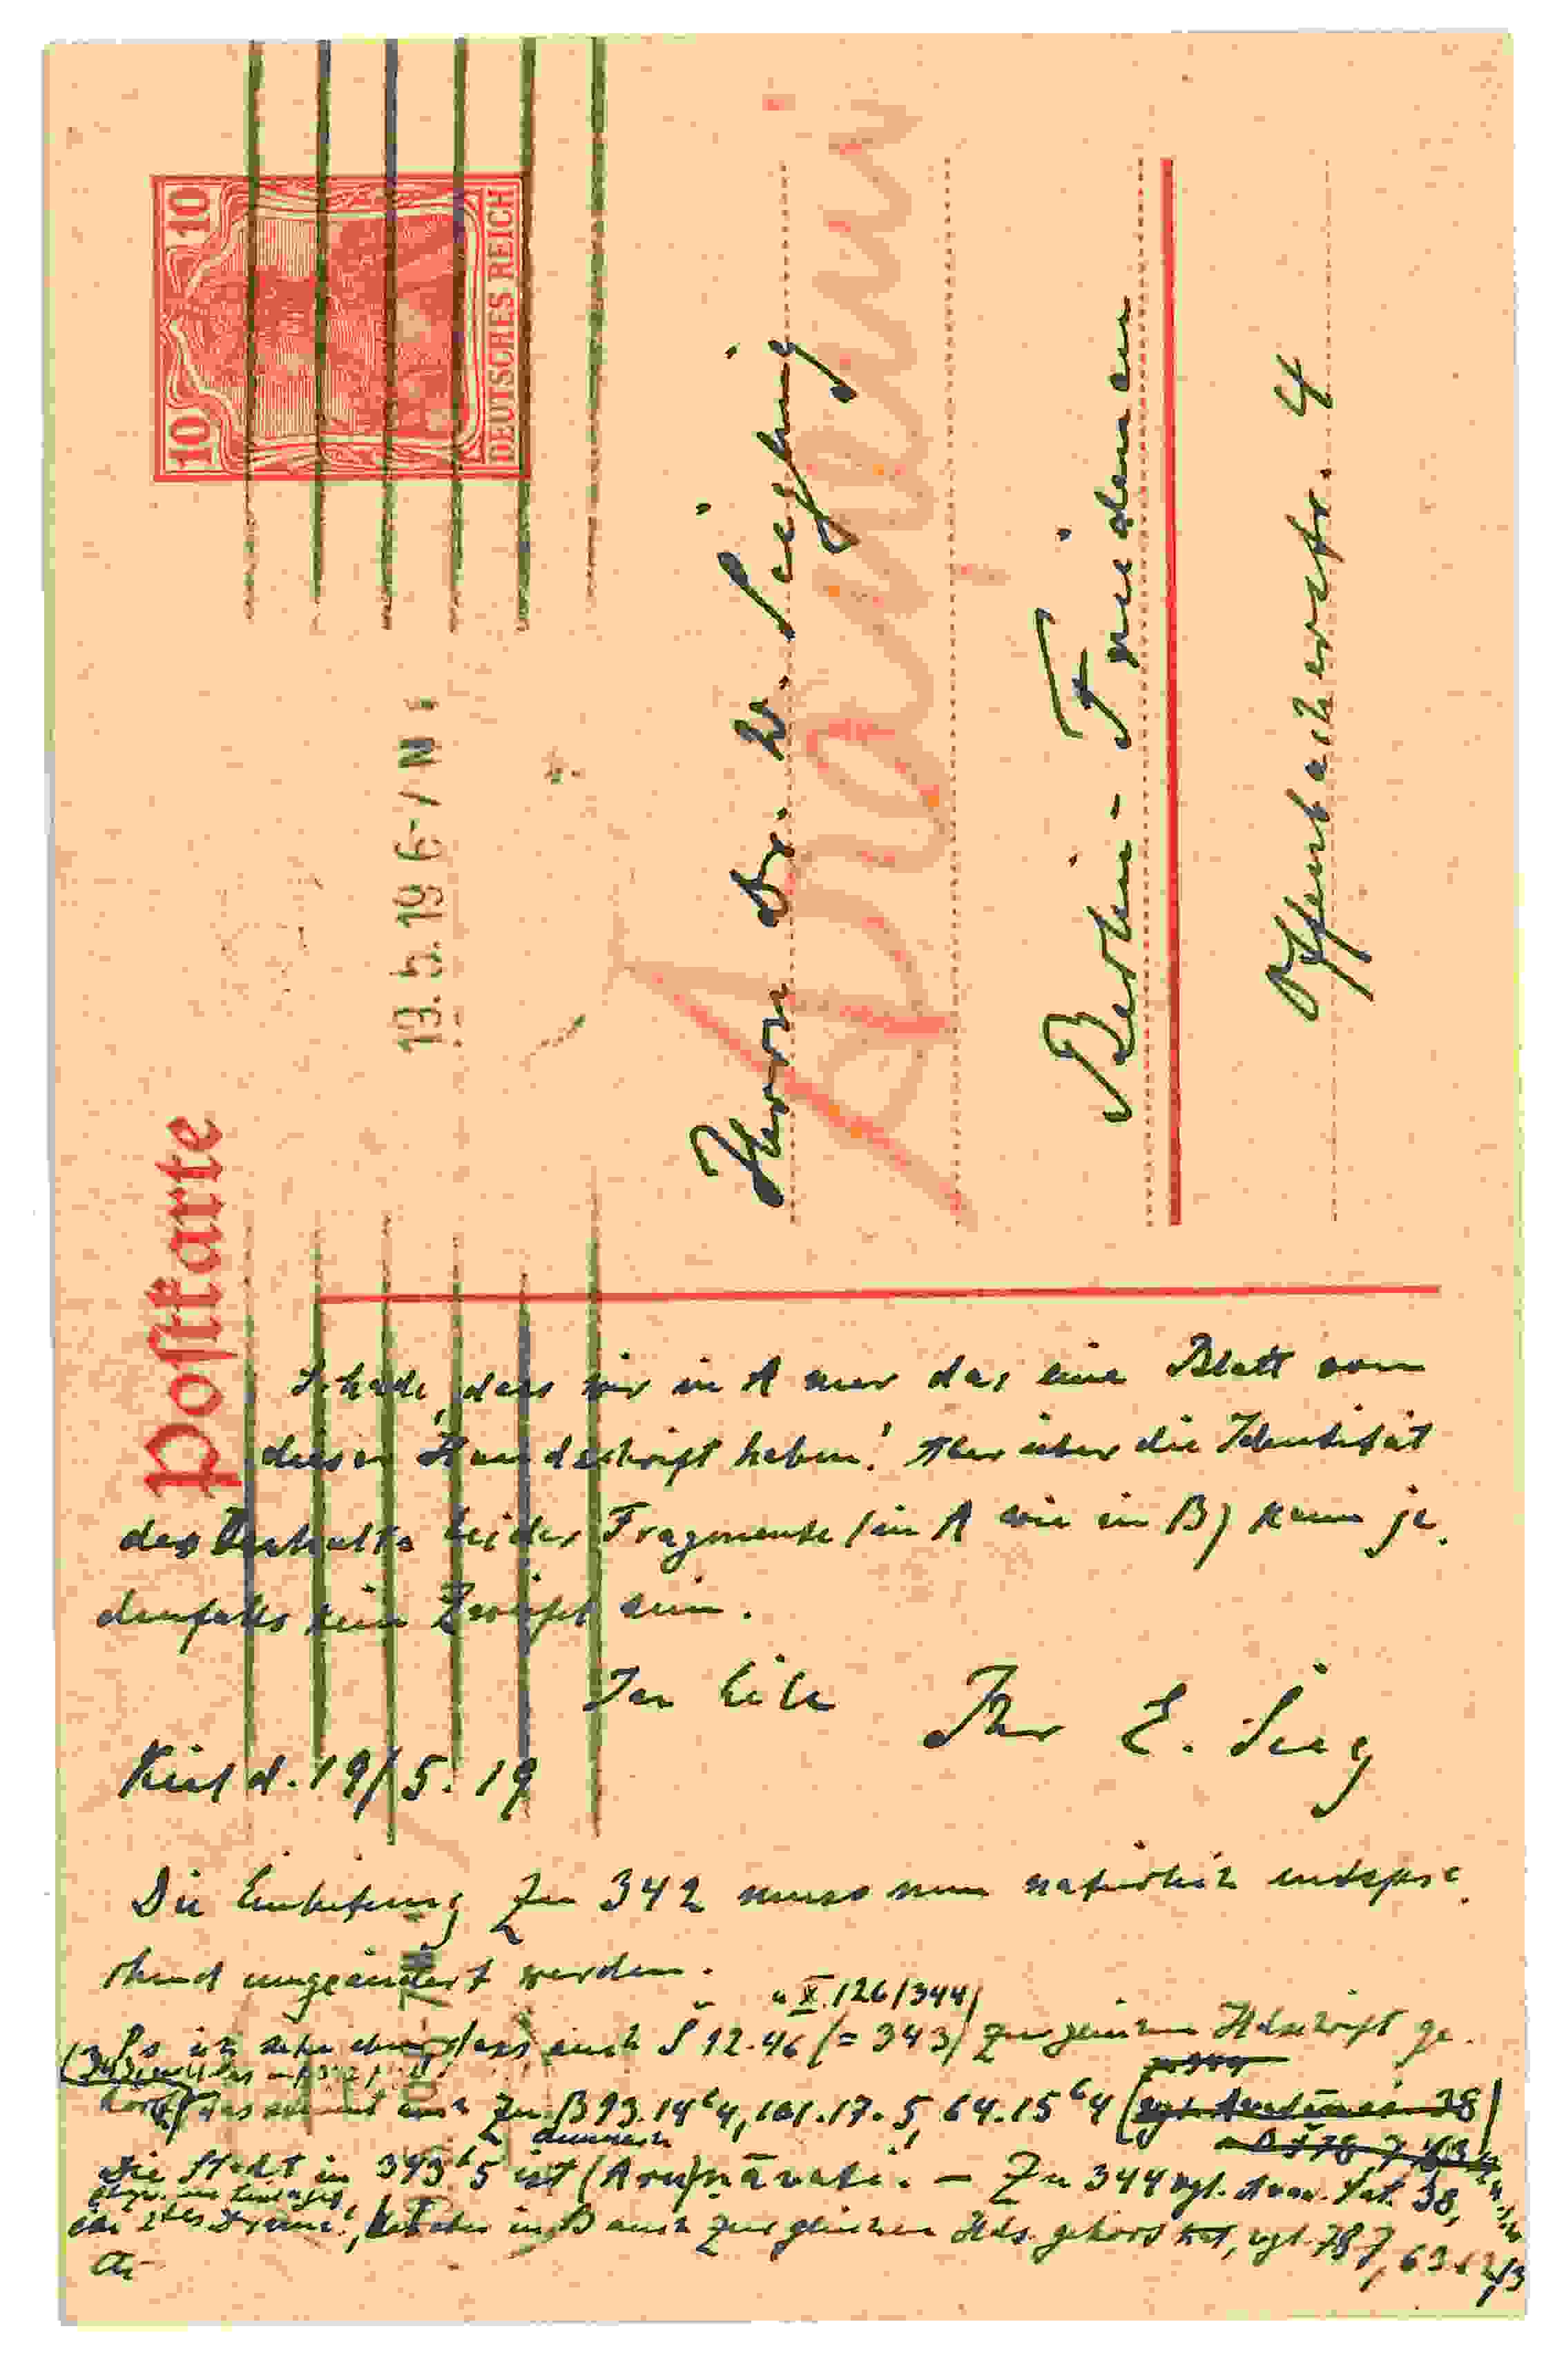 Postkarte
10 10
DEUTSCHES REICH
19.5.19 6-7 N
Herrn Dr. W. Siegling
Berlin - Friedenau
Offenbacherstr. 4
Schade, dass wir in A nur das eine Blatt von
dieser Handschrift haben! Aber über die Identität
des Inhalts beider Fragmente (in A wie in B) kann je-
denfalls kein Zweifel sein.
In Eile Ihr E. Sieg
Kiel d. 19/5. 19
Die Einleitung zu 342 muss nun natürlich entspre-
chend umgeändert werden.
u X.126/344)
Ps ich sehe eben, dass auch Š 12.46 (= 343) zur gleichen Hdschrift ge-
hört zu B 93.14 b 4, 101.17. 5, 64.15 b 4
Die Stadt in 343 b 5 ist demnach (Aru)ṇāvati. — Zu 344 vgl. Avan. Śat. 38,
in B auch zur gleichen Hds. gehört, vgl. 787, 63.12/3